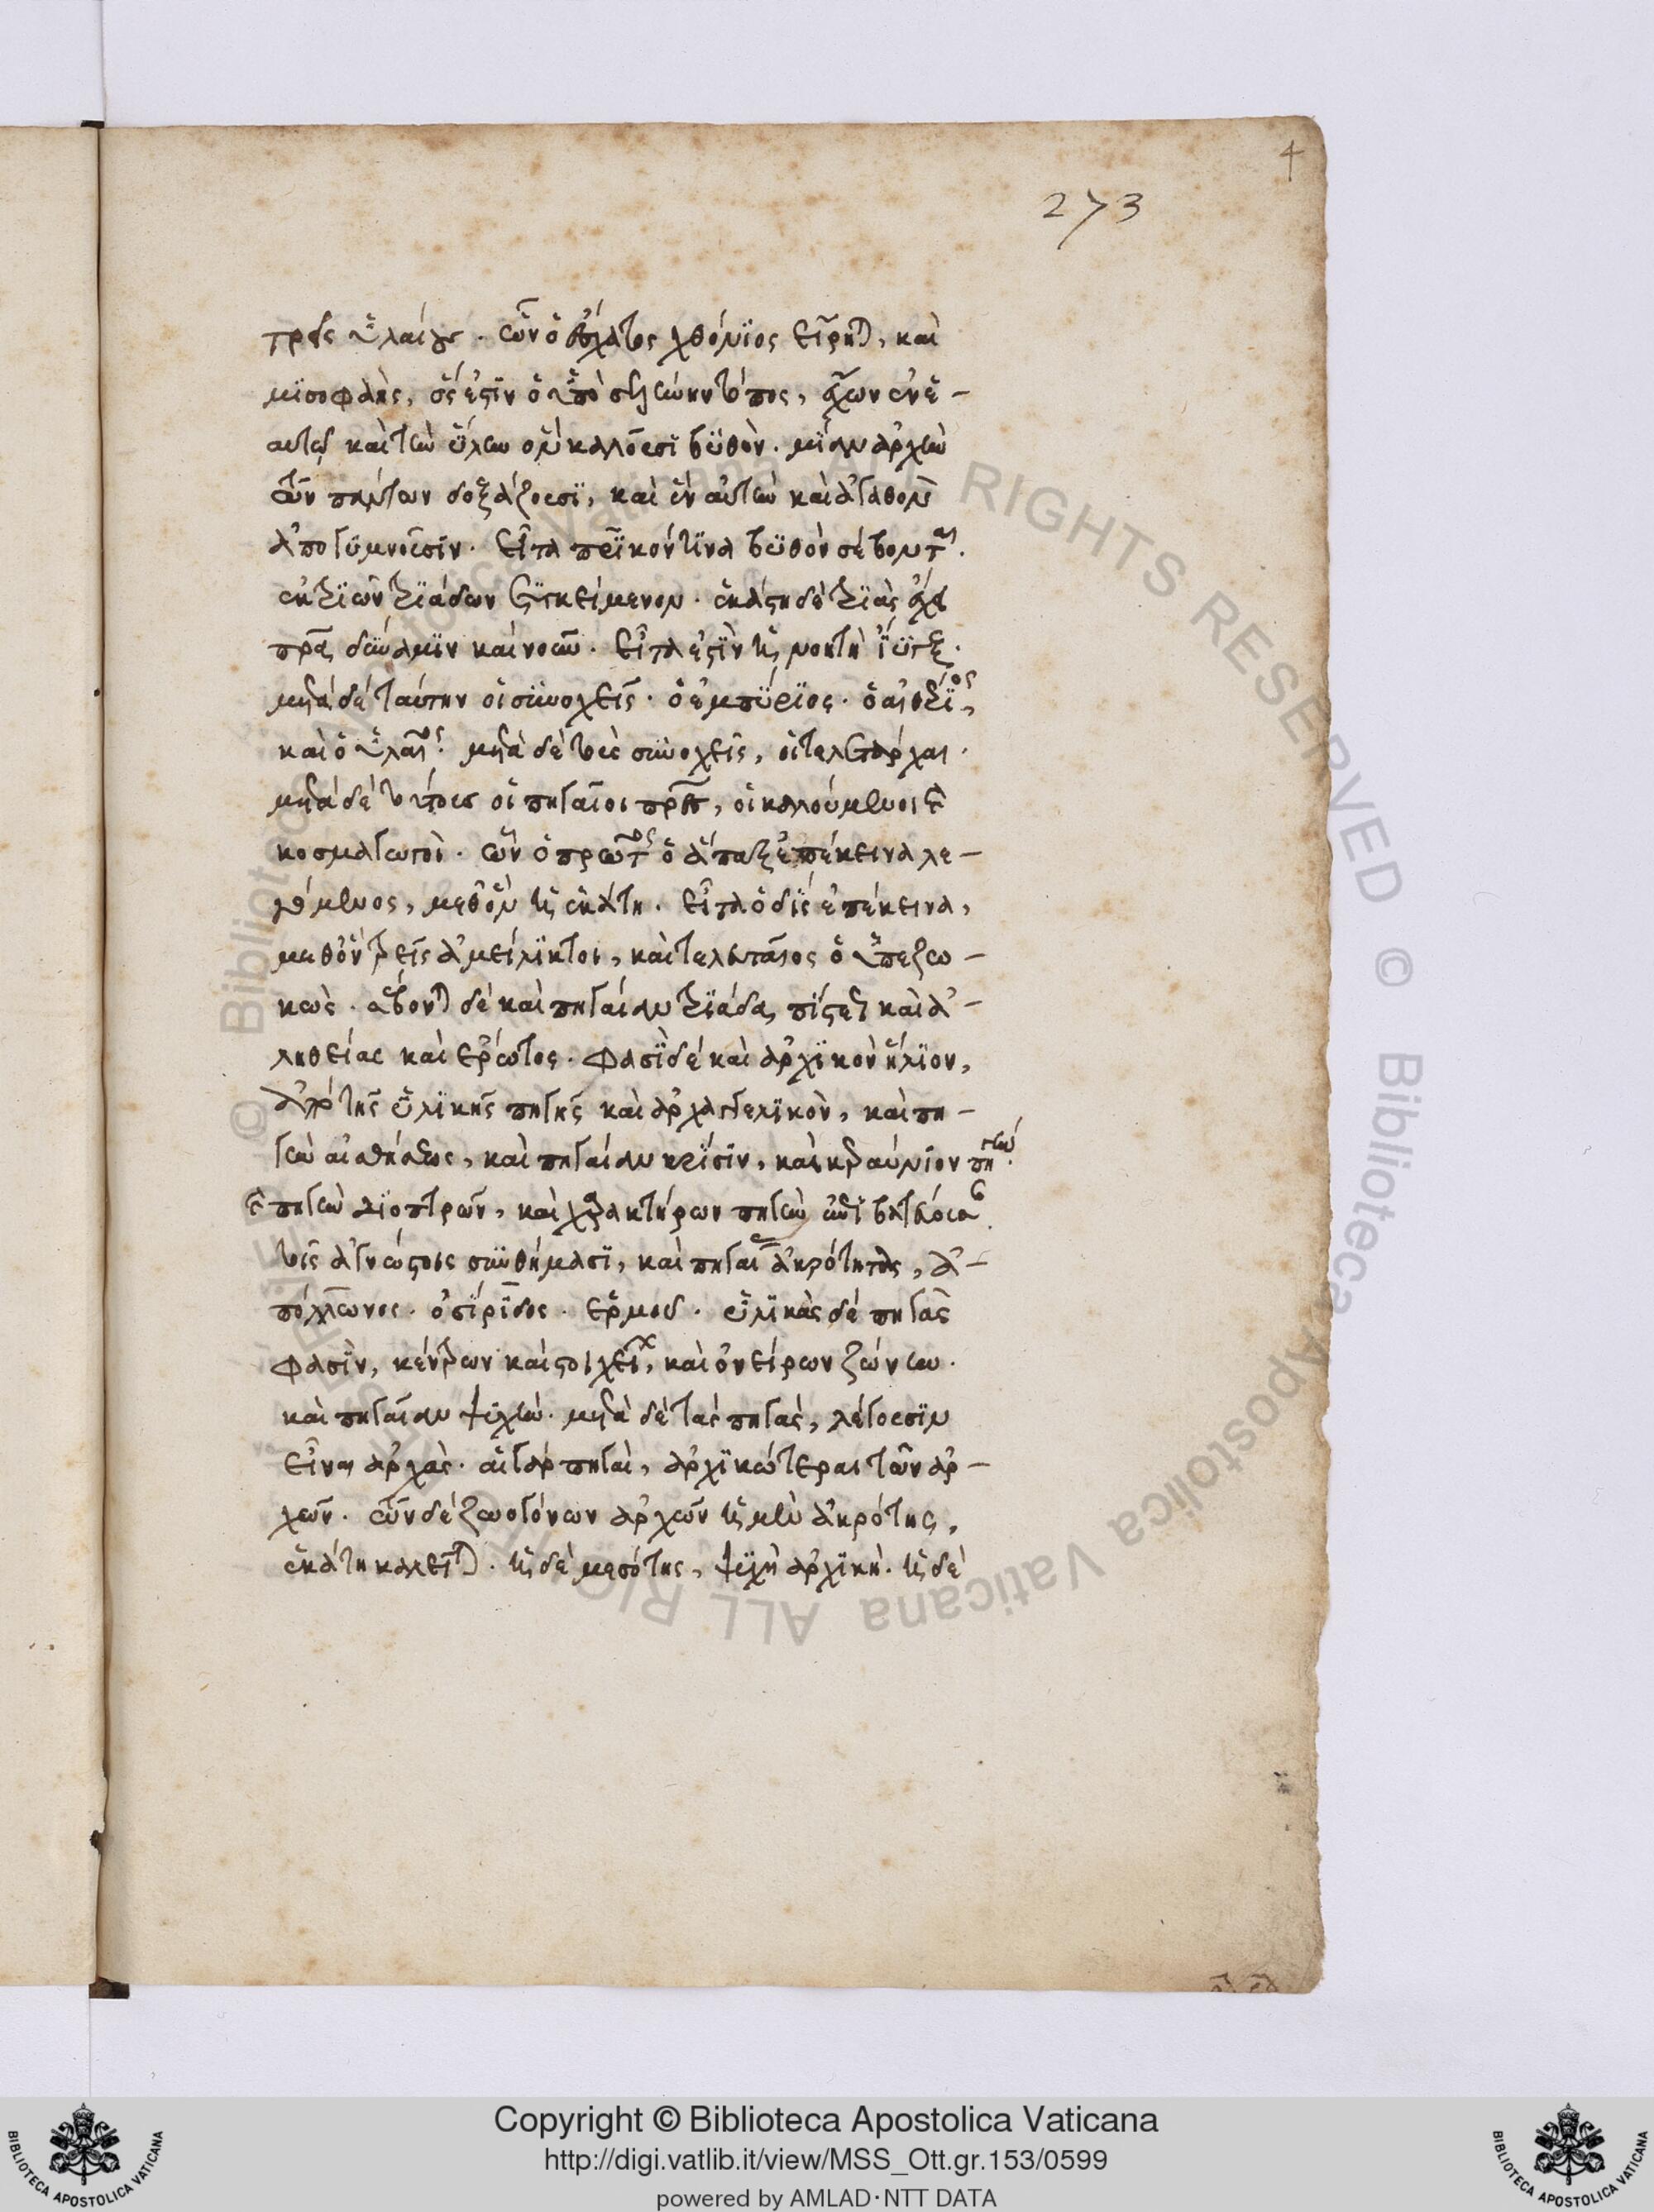 4
273
τρεῖς ὑλαίους. ὧν ὁ ἔσχατος χθόνιος εἴρηται, καὶ
μϊσοφαὴς, ὅς ἐστιν ὁ ὑπὸ σελήνην τόπος, ἔχων ἐν ἑ-
αυτῷ καὶ τὴν ὕλην ἣν καλοῦσϊ βϋθὸν. μΐαν ἀρχὴν
τῶν πάντων δοξάζουσϊ, καὶ ἓν αὐτὴν καὶ ἀγαθὸν
ἀποϋμνοῦσϊν. εἶτα πατρϊκόν τϊνα βϋθὸν σέβονται.
ἐκ τρϊῶν τρϊάδων συγκείμενον. ἑκάστη δὲ τρϊὰς ἔχει
πατέρα, δύναμϊν καὶ νοῦν. εἶτα ἐστϊν ἡ νοητὴ ἴϋγξ.
μετὰ δὲ ταύτην οἱ σϋνοχεῖς. ὁ ἐμπύρϊος. ὁ αἰθέρϊος,
καὶ ὁ ὑλαῖος. μετὰ δὲ τοὺς σϋνοχεῖς, οἱ τελετάρχαι.
μετὰ δὲ τούτους οἱ πηγαῖοι πατέρες, οἱ καλούμενοι καὶ
κοσμαγωγοὶ. ὧν ὁ πρῶτος ὁ ἅπαξ ἐπέκεινα λε-
γόμενος, μεθ' ὃν ἡ ἑκάτη. εἶτα ὁ δϊς ἐπέκεινα,
μεθ' ὃν τρεῖς ἀμείλϊκτοι, καὶ τελευταῖος ὁ ὑπεζω-
κὼς. σέβονται δὲ καὶ πηγαίαν τρϊάδα, πίστεως καὶ ἀ-
ληθείας καὶ ἔρωτος. φασϊ δὲ καὶ ἀρχϊκὸν ἥλϊον,
ἀπὸ τῆς ὑλϊκῆς πηγῆς καὶ ἀρχαγγελϊκὸν, καὶ πη-
γὴν αἰσθήσεως, καὶ πηγαίαν κρίσϊν, καὶ κεραύνιον πηγήν.
καὶ πηγὴν διοπτρῶν, καὶ χαρακτήρων πηγὴν ἐπϊβατεύουσαν
τοῖς ἀγνώστοις σϋνθήμασϊ, καὶ πηγαίας ἀκρότητας, ἀ-
πόλλωνος. ὀσΐρϊδος. ἑρμοῦ. ὑλϊκὰς δὲ πηγὰς
φασϊν, κέντρων καὶ στοιχείων, καὶ ὀνείρων ζώνην.
καὶ πηγαίαν ψϋχὴν. μετὰ δὲ τὰς πηγὰς, λέγουσϊν
εἶναι ἀρχὰς. αἱ γὰρ πηγαὶ, ἀρχϊκώτεραι τῶν ἀρ-
χῶν. τῶν δὲ ζωογόνων ἀρχῶν ἡ μὲν ἀκρότης,
ἑκάτη καλεῖται. ἡ δὲ μεσότης, ψϋχὴ ἀρχϊκὴ. ἡ δὲ
© Biblioteca Apostolica Vaticana ALL RIGHTS RESERVED © Biblioteca Apostolica Vaticana ALL RIGHTS RESERVED
Copyright © Biblioteca Apostolica Vaticana
http://digi.vatlib.it/view/MSS_Ott.gr.153/0599
powered by AMLAD·NTT DATA
BIBLIOTECA APOSTOLICA VATICANA
BIBLIOTECA APOSTOLICA VATICANA